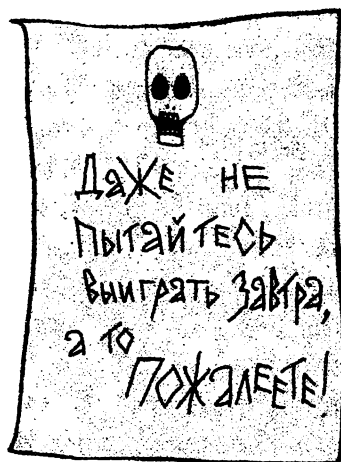 Даже не
пытайтесь
выиграть завтра,
а то
Пожалеете!